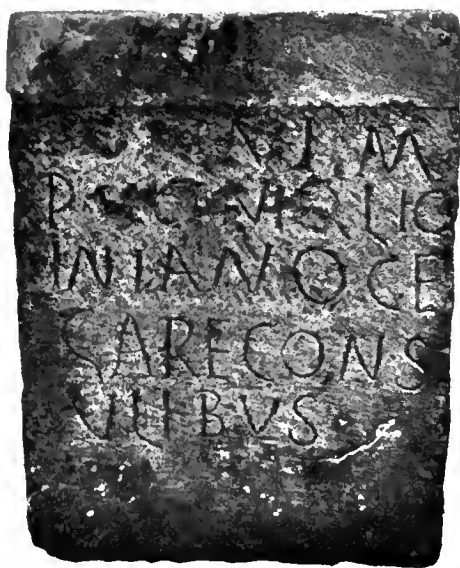 IM
LIC
INIANO CE
SARE CONS
VLIBVS